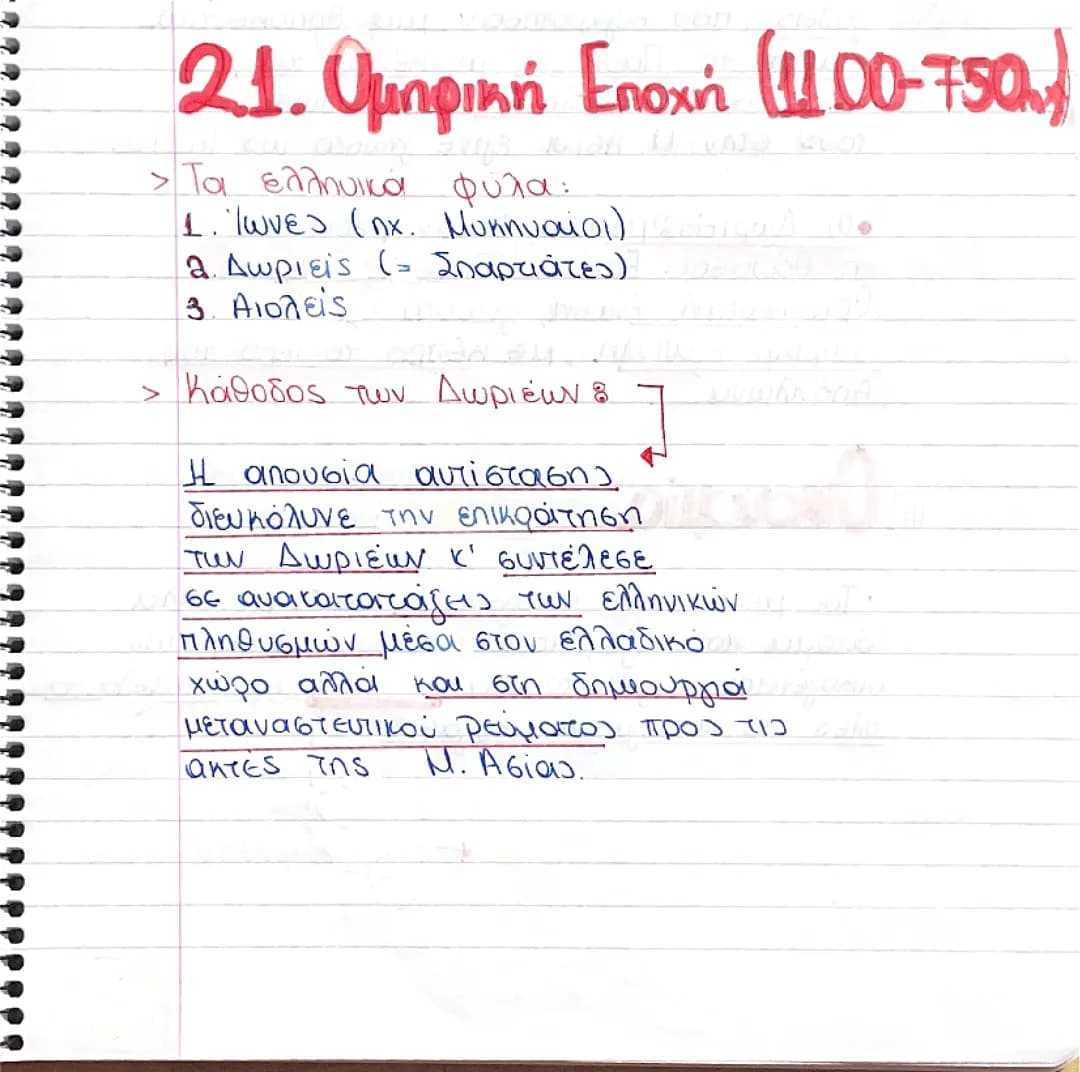 2.1. Ομηρική Εποχή (1100-750π.χ)
> Τα ελληνικά φύλα:
1. Ίωνες (πχ. Μυκηναίοι)
2. Δωριείς (= Σπαρτιάτες)
3. Αιολείς
> Κάθοδος των Δωριέων :
Η απουσία αντίστασης
διευκόλυνε την επικράτηση
των Δωριέων κ' συντέλεσε
σε ανακατατάξεις των ελληνικών
πληθυσμών μέσα στον ελλαδικό
χώρο αλλά και στη δημιουργία
μεταναστευτικού ρεύματος προς τις
ακτές της Μ. Ασίας.